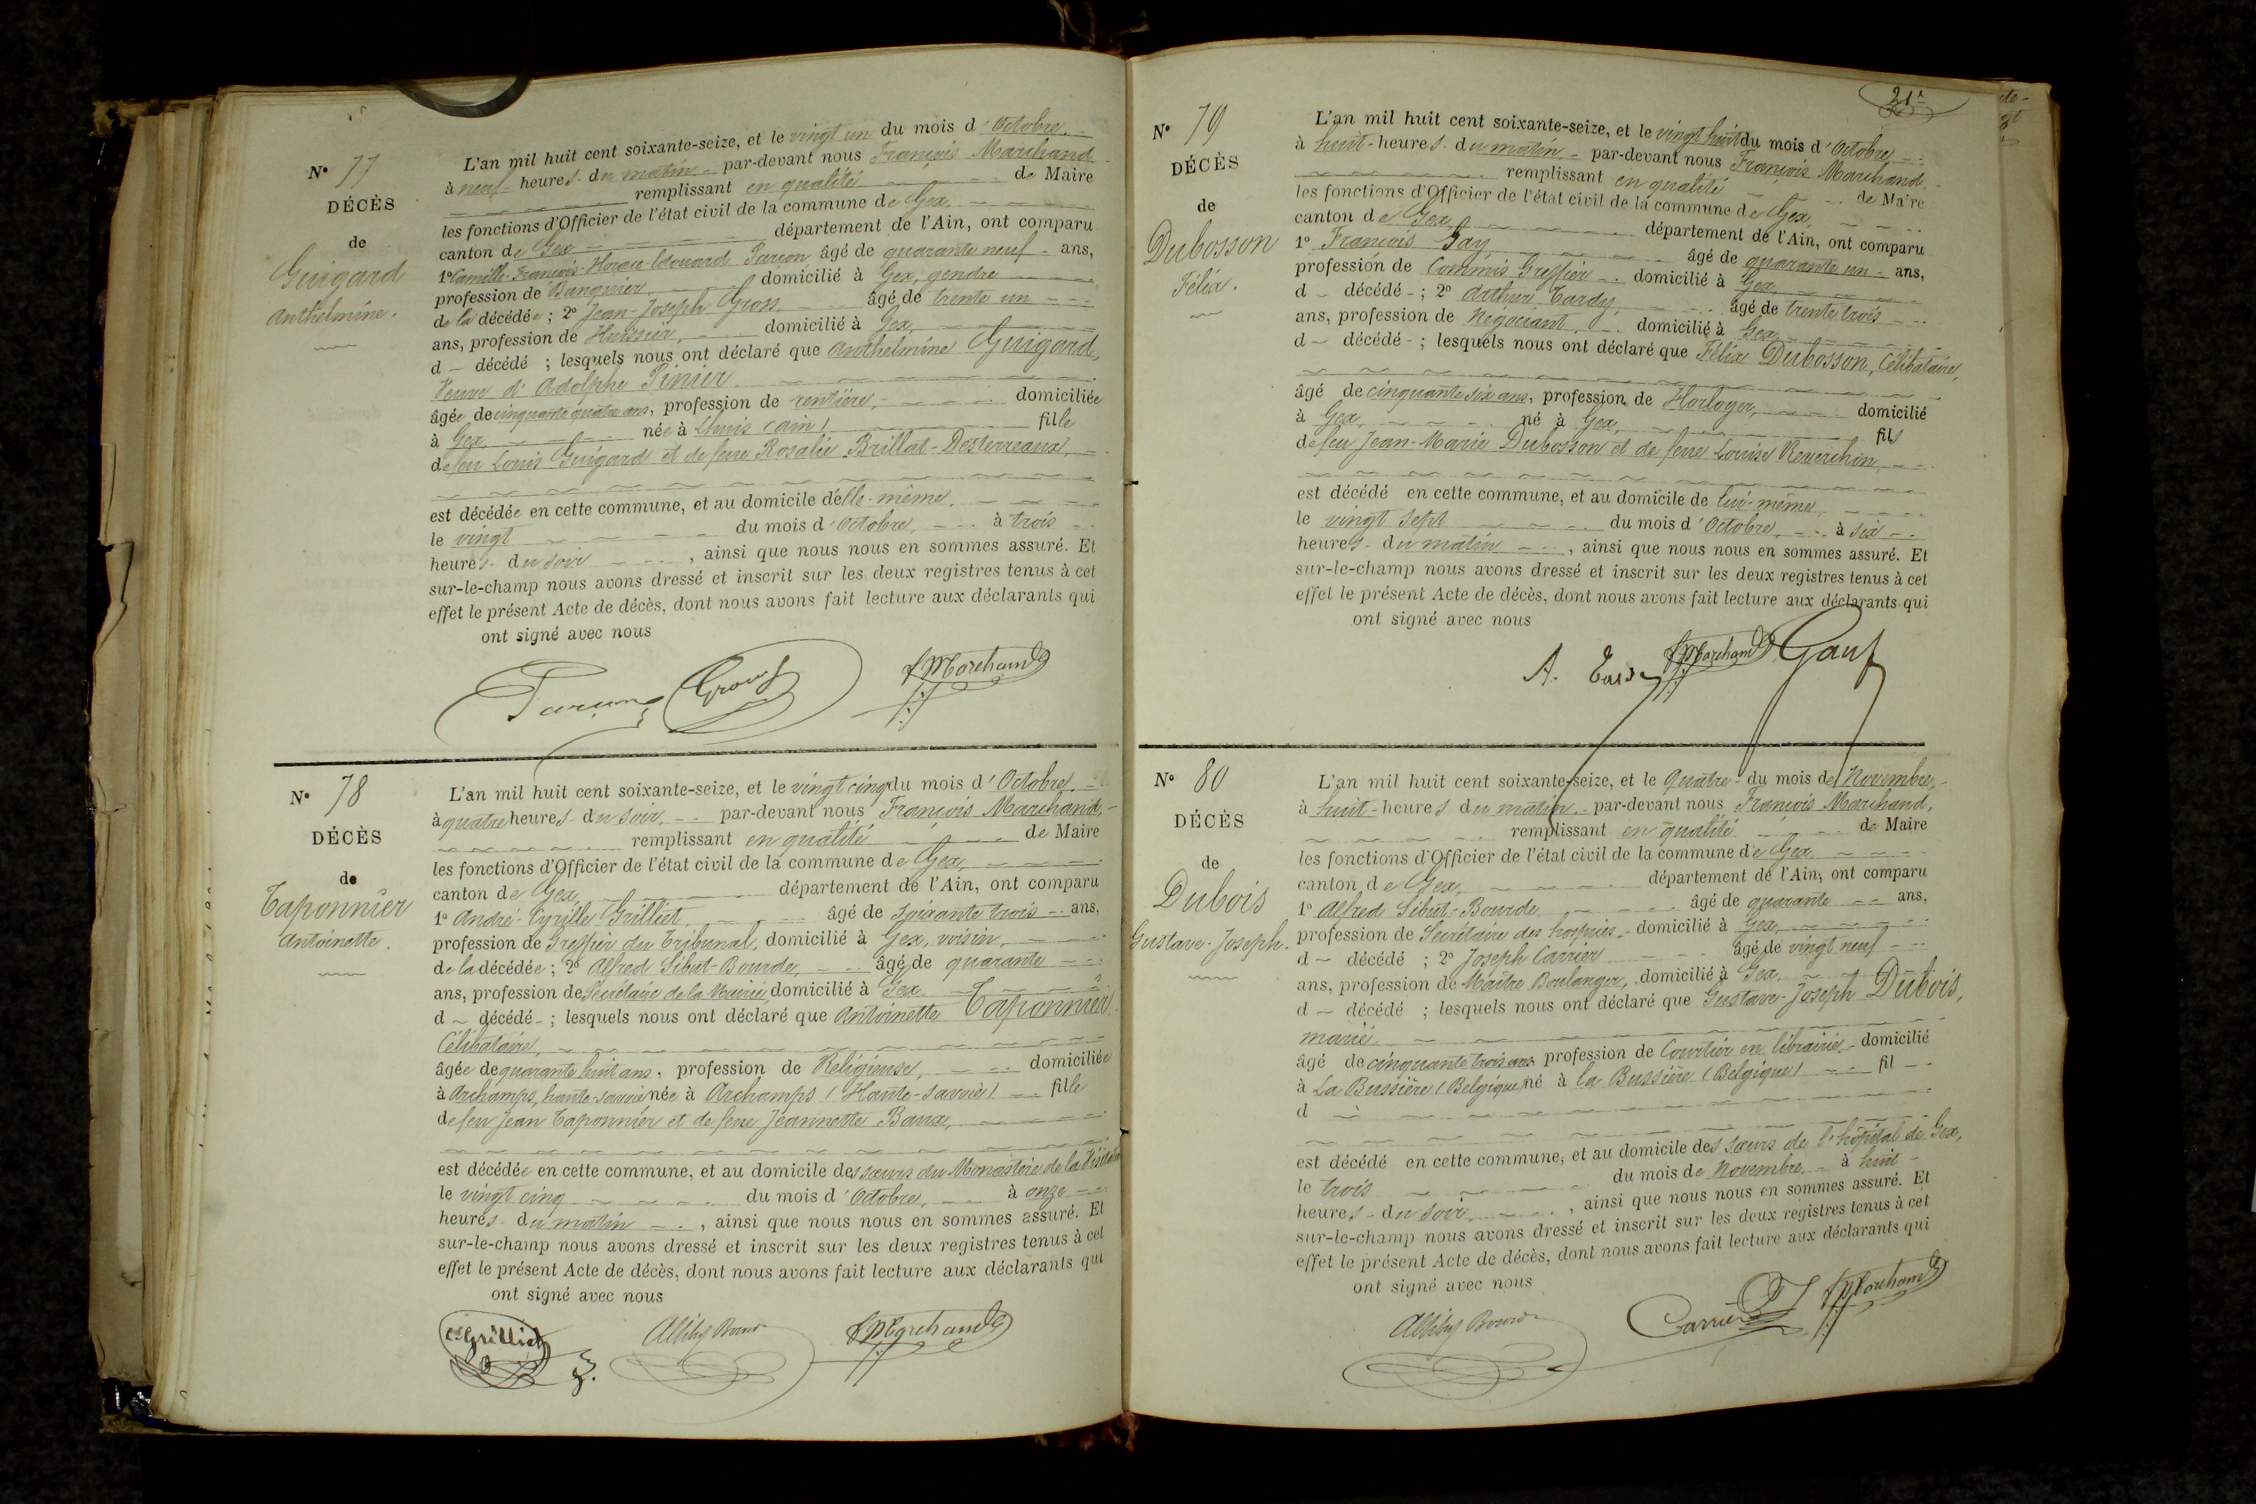 N° 77
DÉCÈS
de
Guigard
Anthelmine.
L'an mil huit cent soixante-seize, et le vingt un du mois d'Octobre
à neuf heures du matin par-devant nous François Marchand
remplissant en qualité de Maire
les fonctions d'Officier de l'état civil de la commune de Gex,
canton de Gex département de l'Ain, ont comparu
1° Camille-François-Horace-Edouard Parion âgé de quarante neuf ans,
profession de Banquier, domicilié à Gex, gendre
de la décédée ; 2° Jean-Joseph Gros âgé de trente un
ans, profession de Huissier, domicilié à Gex,
d décédé ; lesquels nous ont déclaré que Anthelmine Guigard,
Veuve d'Adolphe Pinier
âgée de cinquante quatre ans, profession de rentière, domiciliée
à Gex née à Lhuis (ain) fille
de feu Louis Guigard et de feue Rosalie Brillat-Desterreaux,
est décédée en cette commune, et au domicile d'elle-même,
le vingt du mois d'Octobre, à trois
heures du soir , ainsi que nous nous en sommes assuré. Et
sur-le-champ nous avons dressé et inscrit sur les deux registres tenus à cet
effet le présent Acte de décès, dont nous avons fait lecture aux déclarants qui
ont signé avec nous
Gros F Marchand
N° 78
DÉCÈS
de
Taponnier
Antoinette.
L'an mil huit cent soixante-seize, et le vingt cinq du mois d'Octobre,
à quatre heures du soir, par-devant nous François Marchand,
remplissant en qualité de Maire
les fonctions d'Officier de l'état civil de la commune de Gex,
canton de Gex, département de l'Ain, ont comparu
1° André-Cyrille Grilliet, âgé de soixante trois ans,
profession de Greffier du Tribunal, domicilié à Gex, voisin,
de la décédée ; 2° Alfred Sibut-Bourde, âgé de quarante
ans, profession de Secrétaire de la Mairie, domicilié à Gex
d décédé ; lesquels nous ont déclaré que Antoinette Taponnier
Célibataire,
âgée de quarante huit ans, profession de Religieuse, domiciliée
à Archamps, haute-savoie née à Archamps (Haute-Savoie) fille
de feu Jean Taponnier et de feue Jeannette Baux,
est décédée en cette commune, et au domicile des sœurs du Monastère de la Visitation
le vingt cinq du mois d'Octobre, à onze
heures du matin , ainsi que nous nous en sommes assuré. Et
sur-le-champ nous avons dressé et inscrit sur les deux registres tenus à cet
effet le présent Acte de décès, dont nous avons fait lecture aux déclarants qui
ont signé avec nous
Grilliet A Sibut Bourde F Marchand
21e
N° 79
DÉCÈS
de
Dubosson
Félix.
L'an mil huit cent soixante-seize, et le vingt huit du mois d'Octobre
à huit heures du matin par-devant nous François Marchand
remplissant en qualité de Maire
les fonctions d'Officier de l'état civil de la commune de Gex,
canton de Gex, département de l'Ain, ont comparu
1° François Gay âgé de quarante un ans,
profession de Commis Greffier domicilié à Gex,
d décédé ; 2° Arthur Tardy, âgé de trente trois
ans, profession de Négociant, domicilié à Gex
d décédé ; lesquels nous ont déclaré que Félix Dubosson, Célibataire,
âgé de cinquante six ans, profession de Horloger, domicilié
à Gex, né à Gex, fils
de feu Jean-Marie Dubosson et de feue Louise Reverchon
est décédé en cette commune, et au domicile de lui-même,
le vingt sept du mois d'Octobre, à six
heures du matin , ainsi que nous nous en sommes assuré. Et
sur-le-champ nous avons dressé et inscrit sur les deux registres tenus à cet
effet le présent Acte de décès, dont nous avons fait lecture aux déclarants qui
ont signé avec nous
A. Tardy F Marchand Gay
N° 80
DÉCÈS
de
Dubois
Gustave-Joseph.
L'an mil huit cent soixante-seize, et le quatre du mois de Novembre,
à huit heures du matin par-devant nous François Marchand,
remplissant en qualité de Maire
les fonctions d'Officier de l'état civil de la commune de Gex
canton de Gex, département de l'Ain, ont comparu
1° Alfred Sibut-Bourde âgé de quarante ans,
profession de Secrétaire des hospices domicilié à Gex,
d décédé ; 2° Joseph Carrier âgé de vingt neuf
ans, profession de Maître Boulanger, domicilié à Gex,
d décédé ; lesquels nous ont déclaré que Gustave-Joseph Dubois,
marié
âgé de cinquante trois ans profession de Courtier en librairie domicilié
à La Bussière (Belgique) né à la Bussière (Belgique) fil
d
est décédé en cette commune, et au domicile des sœurs de l'hôpital de Gex,
le trois du mois de Novembre, à huit
heures du soir , ainsi que nous nous en sommes assuré. Et
sur-le-champ nous avons dressé et inscrit sur les deux registres tenus à cet
effet le présent Acte de décès, dont nous avons fait lecture aux déclarants qui
ont signé avec nous
A Sibut Bourde Carrier J F Marchand